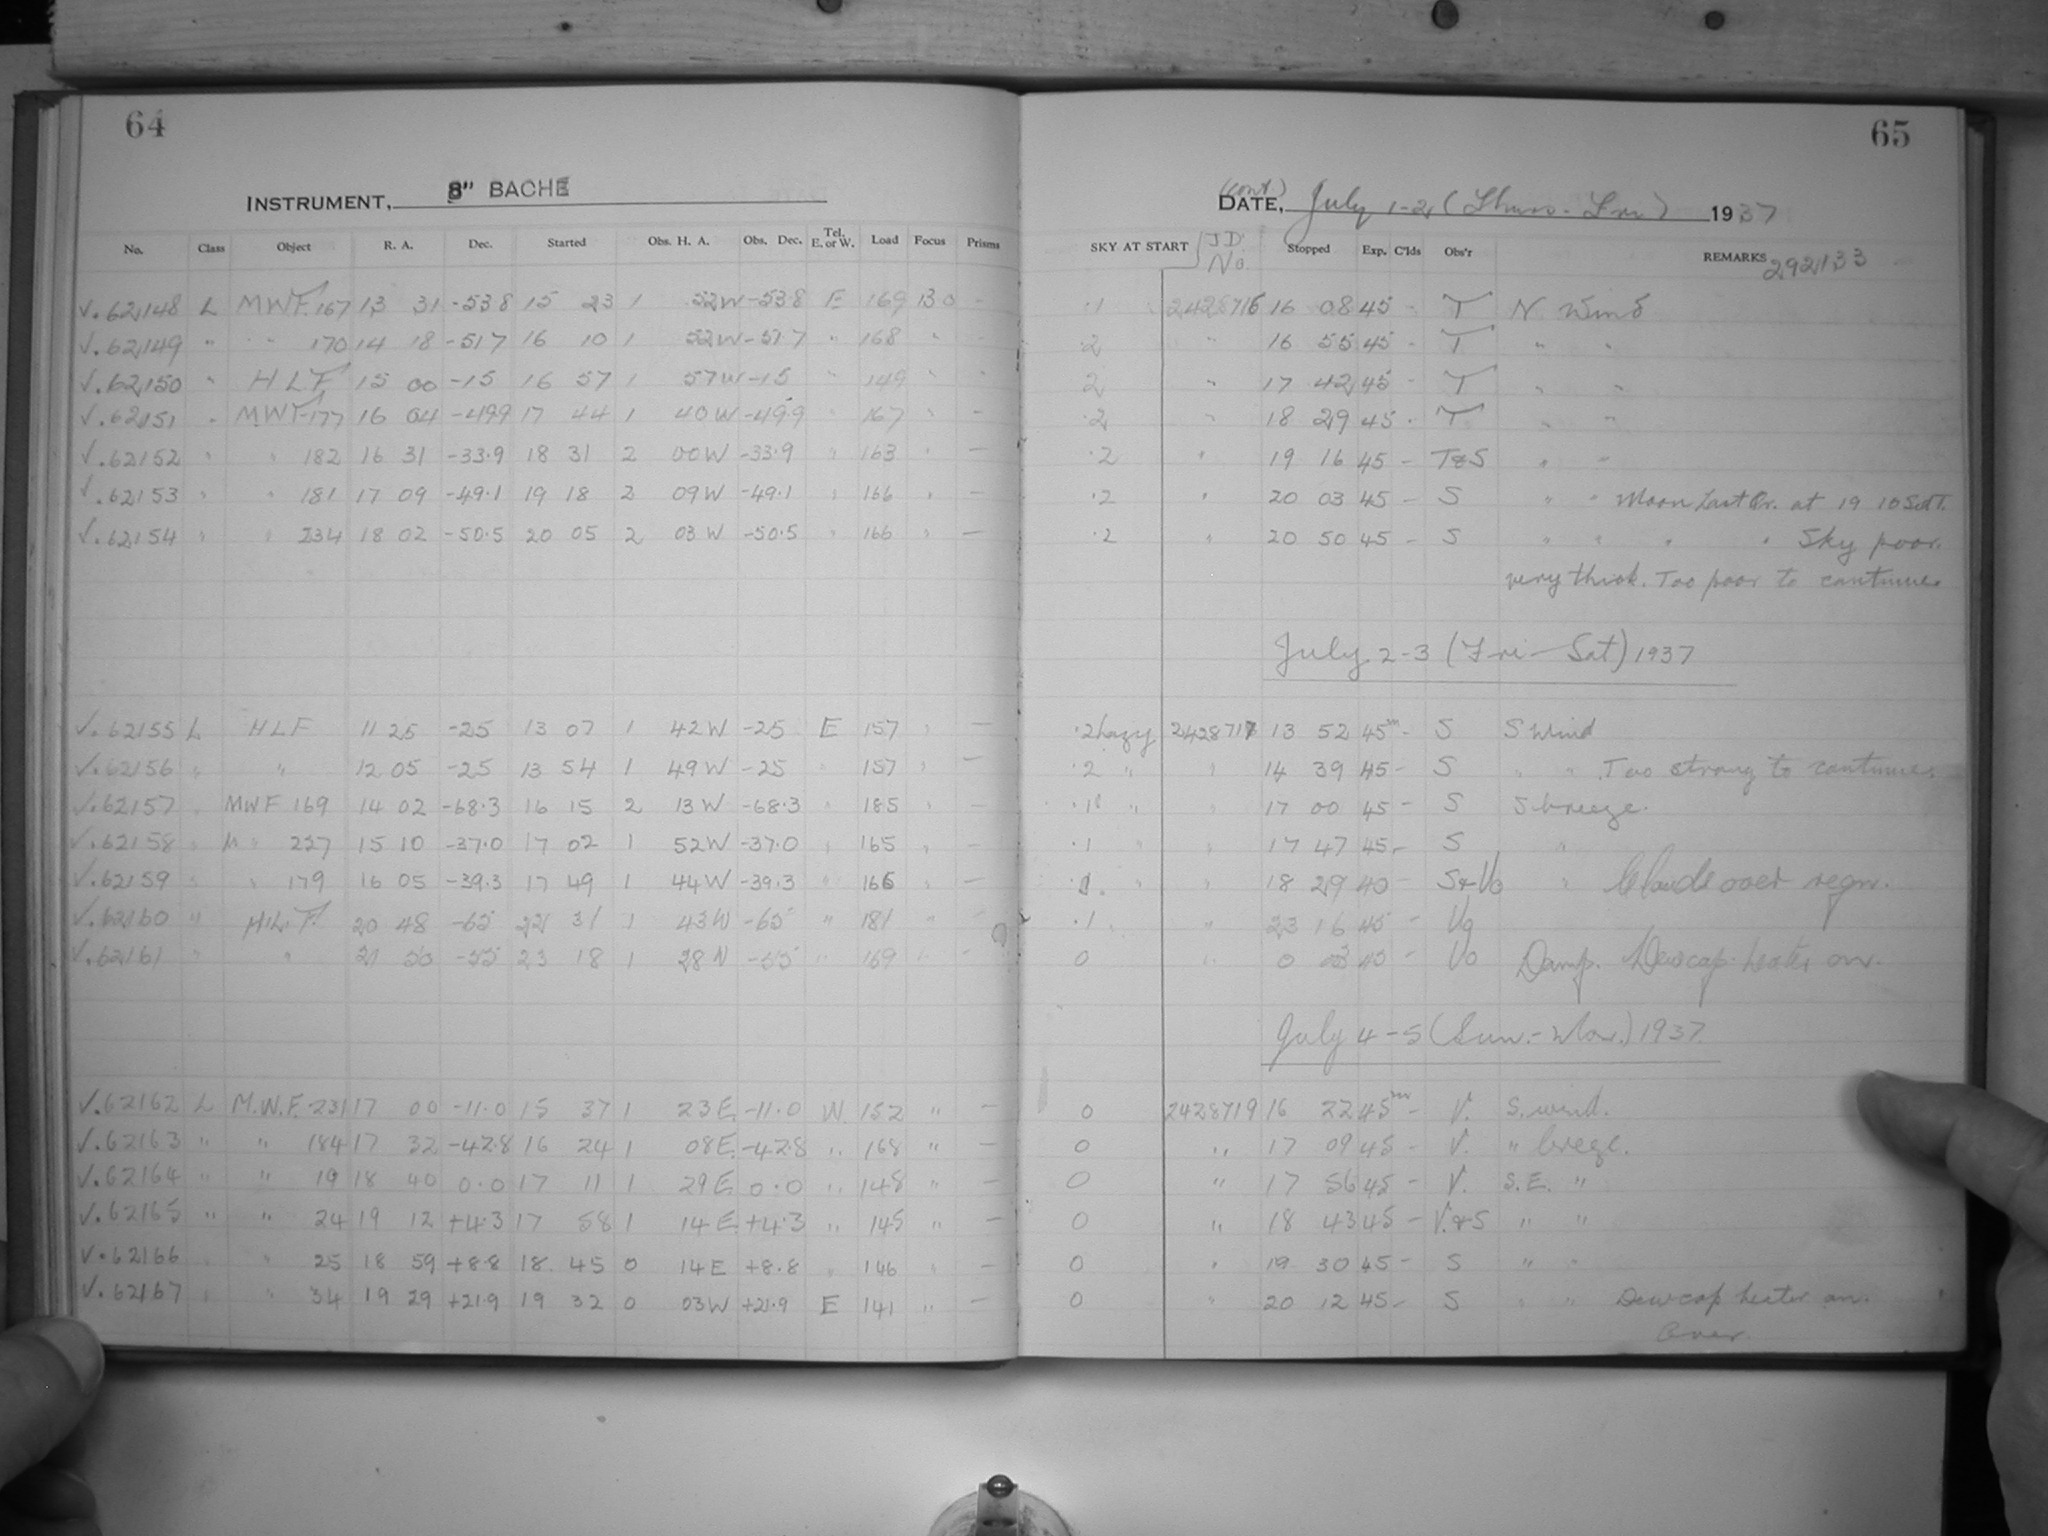 64
INSTRUMENT, 8" BACHE
No. Class Object R. A. Dec. Started Obs. H. A. Obs. Dec. Tel. E. or W. Load Focus Prisms
√.62148 L MWF. 167 13 31 -53.8 15 23 1 52W -53.8 E 169 13.0 -
√.62149 " " " 170 14 18 -51.7 16 10 1 52W -51.7 " 168 " -
√.62150 " HLF 15 00 -15 16 57 1 57W -15 " 149 " -
√.62151 " MWF 177 16 04 -49.9 17 44 1 40W -49.9 " 167 " -
√.62152 " " 182 16 31 -33.9 18 31 2 00W -33.9 " 163 " -
√.62153 " " 181 17 09 -49.1 19 18 2 09W -49.1 " 166 " -
√.62154 " " 234 18 02 -50.5 20 05 2 03W -50.5 " 166 " -
√.62155 L HLF 11 25 -25 13 07 1 42W -25 E 157 " -
√.62156 " " 12 05 -25 13 54 1 49W -25 " 157 " -
√.62157 " MWF 169 14 02 -68.3 16 15 2 13W -68.3 " 185 " -
√.62158 " " 227 15 10 -37.0 17 02 1 52W -37.0 " 165 " -
√.62159 " " 179 16 05 -39.3 17 49 1 44W -39.3 " 166 " -
√.62160 " H.L.F. 20 48 -65 22 31 1 43W -65 " 181 " -
√.62161 " " 21 50 -55 23 18 1 28W -55 " 169 " -
√.62162 L M.W.F. 231 17 00 -11.0 15 37 1 23E. -11.0 W. 152 " -
√.62163 " " 184 17 32 -42.8 16 24 1 08E. -42.8 " 168 " -
√.62164 " " 19 18 40 0.0 17 11 1 29E. 0.0 " 148 " -
√.62165 " " 24 19 12 +4.3 17 58 1 14E. +4.3 " 145 " -
√.62166 " " 25 18 59 +8.8 18 45 0 14E +8.8 " 146 " -
√.62167 " " 34 19 29 +21.9 19 32 0 03W +21.9 E 141 " -
65
(cont.)
DATE, July 1-2 (Thurs.-Fri) 1937
SKY AT START J.D. No. Stopped Exp. C'lds Obs'r REMARKS 292133
.1 2428716 16 08 45 - T N Wind
.2 " 16 55 45 - T " "
2 " 17 42 45 - T " "
.2 " 18 29 45 - T " "
.2 " 19 16 45 - T&S " "
.2 " 20 03 45 - S " " Moon Last Qr. at 19 10 Sd T.
.2 " 20 50 45 - S " " " " Sky poor.
very thick. Too poor to continue
July 2-3 (Fri-Sat) 1937
.2 hazy 2428717 13 52 45m - S S Wind
.2 " " 14 39 45 - S " " Too strong to continue
.1 " " 17 00 45 - S S breeze.
.1 " " 17 47 45 - S "
.1 " " 18 29 40 - S&Vo " Clouds over regn.
.1 " 23 16 45 - Vo
0 " 0 03 45 - Vo Damp. Dewcap heater on.
July 4-5 (Sun.-Mon.) 1937
0 2428719 16 22 45m - V. S. wind.
0 " 17 09 45 - V. " breeze.
0 " 17 56 45 - V. S.E. "
0 " 18 43 45 - V.&S " "
0 " 19 30 45 - S " "
0 " 20 12 45 - S " " Dewcap heater on.
Over